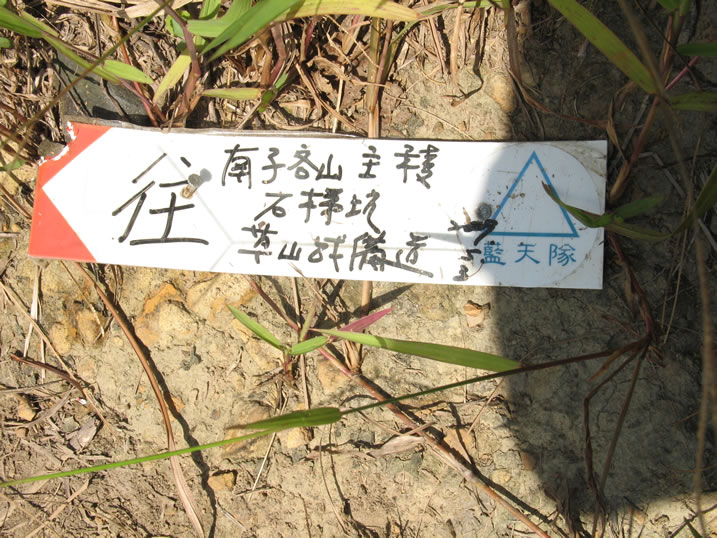 往
南子吝山主稜
石梯坑
草山戰備道
藍天隊